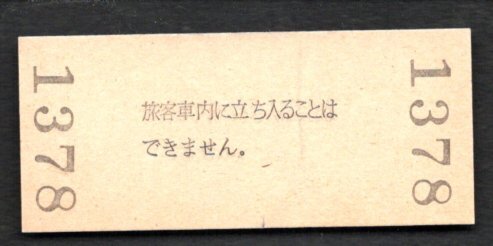 1378
旅客車内に立ち入ることは
できません。
1378